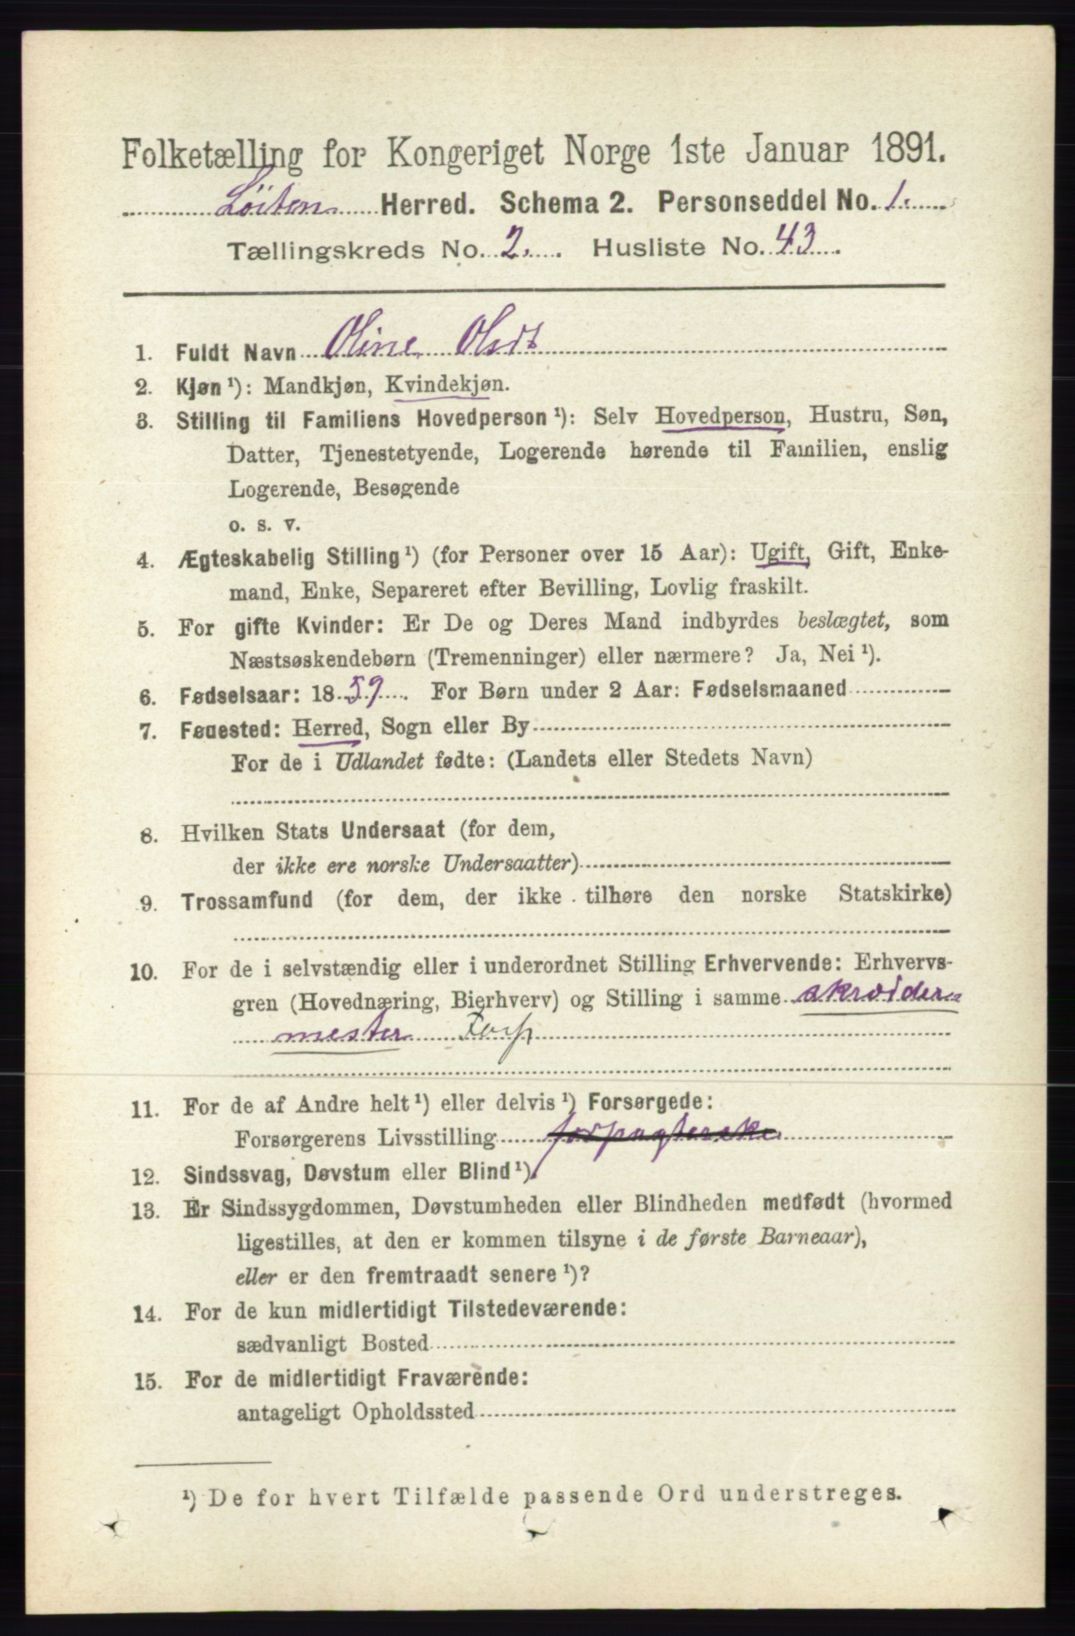 Folketælling for Kongeriget Norge 1ste Januar 1891.
Löiten Herred. Schema 2. Personseddel No. 1.
Tællingskreds No. 2. Husliste No. 43
1. Fuldt Navn Oline Olsdt
2. Kjøn ¹): Mandkjøn, Kvindekjøn.
3. Stilling til Familiens Hovedperson ¹): Selv Hovedperson, Hustru, Søn,
Datter, Tjenestetyende, Logerende hørende til Familien, enslig
Logerende, Besøgende
o. s. v.
4. Ægteskabelig Stilling ¹) (for Personer over 15 Aar): Ugift, Gift, Enke-
mand, Enke, Separeret efter Bevilling, Lovlig fraskilt.
5. For gifte Kvinder: Er De og Deres Mand indbyrdes beslægtet, som
Næstsøskendebørn (Tremenninger) eller nærmere? Ja, Nei ¹).
6. Fødselsaar: 1859. For Børn under 2 Aar: Fødselsmaaned
7. Fødested: Herred, Sogn eller By
For de i Udlandet fødte: (Landets eller Stedets Navn)
8. Hvilken Stats Undersaat (for dem,
der ikke ere norske Undersaatter)
9. Trossamfund (for dem, der ikke tilhøre den norske Statskirke)
10. For de i selvstændig eller i underordnet Stilling Erhvervende: Erhvervs-
gren (Hovednæring, Bierhverv) og Stilling i samme skrædder
mester Forp
11. For de af Andre helt ¹) eller delvis ¹) Forsørgede:
Forsørgerens Livsstilling forpagterske
12. Sindssvag, Døvstum eller Blind ¹).
13. Er Sindssygdommen, Døvstumheden eller Blindheden medfødt (hvormed
ligestilles, at den er kommen tilsyne i de første Barneaar),
eller er den fremtraadt senere ¹)?
14. For de kun midlertidigt Tilstedeværende:
sædvanligt Bosted
15. For de midlertidigt Fraværende:
antageligt Opholdssted
¹) De for hvert Tilfælde passende Ord understreges.